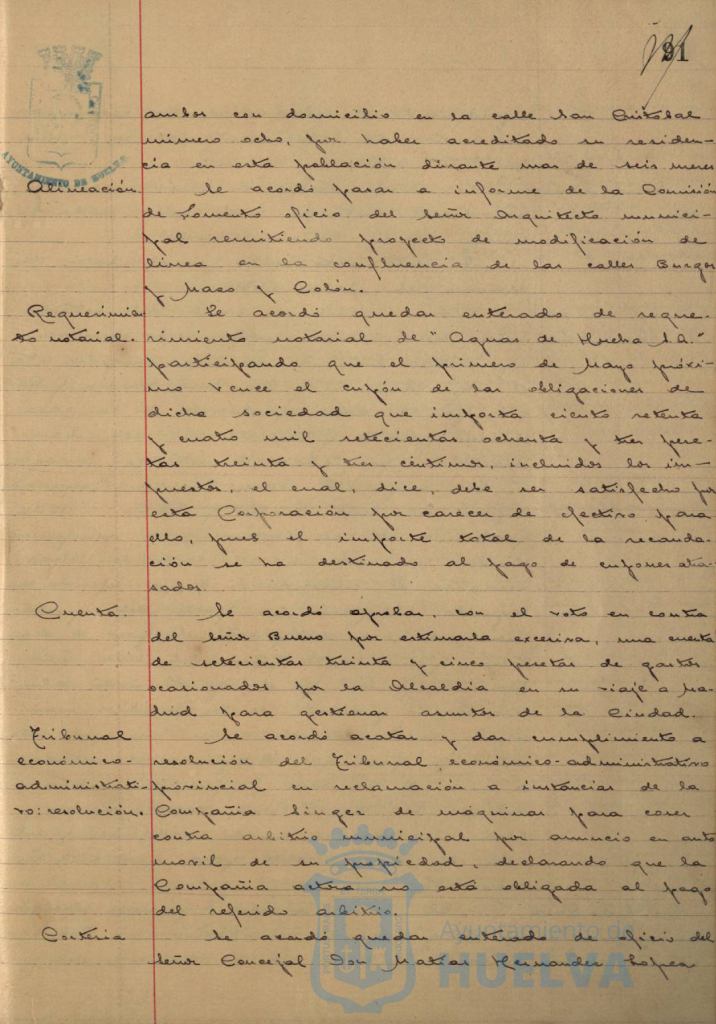 91
AYUNTAMIENTO DE HUELVA
ambos con domicilio en la calle San Cristobal
número ocho, por haber acreditado su residen-
cia en esta población durante mas de seis meses
Alineación. Se acordó pasar a informe de la Comisión
de Fomento oficio del Señor Arquitecto munici-
pal remitiendo proyecto de modificación de
linea en la confluencia de las calles Burgos
y Maso y Colón.
Requerimien Se acordó quedar enterado de reque-
to notarial. rimiento notarial de "Aguas de Huelva S.A."
participando que el primero de Mayo próxi-
mo vence el cupón de las obligaciones de
dicha sociedad que importa ciento setenta
y cuatro mil setecientas ochenta y tres pese-
tas treinta y tres céntimos, incluidos los im-
puestos, el cual, dice, debe ser satisfecho por
esta Corporación por carecer de efectivo para
ello, pues el importe total de la recauda-
ción se ha destinado al pago de cupones atra-
sados.
Cuenta. Se acordó aprobar, con el voto en contra
del Señor Bueno por estimarla excesiva, una cuenta
de setecientas treinta y cinco pesetas de gastos
ocasionados por la Alcaldia en su viaje a Ma-
drid para gestionar asuntos de la Ciudad.
Tribunal Se acordó acatar y dar cumplimiento a
económico- resolución del Tribunal económico-administrativo
administrati- provincial en reclamación a instancias de la
vo: resolución. Compañia Singer de máquinas para coser
contra arbitrio municipal por anuncio en auto
movil de su propiedad, declarando que la
Compañia actora no está obligada al pago
del referido arbitrio.
Cortesia Se acordó quedar enterado de oficio del
Señor Concejal Don Matias Hernandez Lopez
Ayuntamiento de
HUELVA